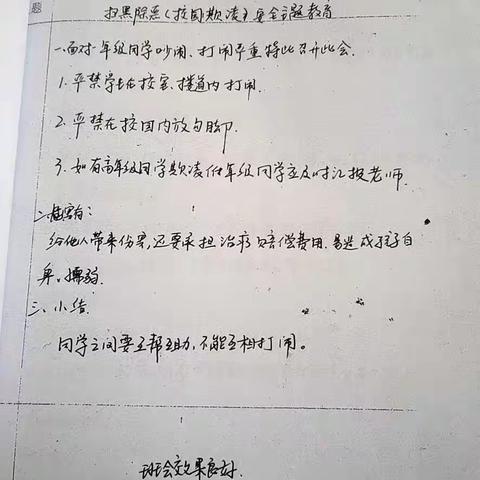 题
扫黑除恶(校园欺凌)安全主题教育
一.面对一年级同学吵闹、打闹严重特此召开此会.
1.严禁学生在校室、楼道内打闹.
2.严禁在校园内放勾脚.
3.如有高年级同学欺凌低年级同学应及时汇报老师.
二.危害:
给他人带来伤害,还要承担治疗赔偿费用.易造成孩子自
身
三、小结.
同学之间要互帮互助,不能互相打闹。
班会效果良好.